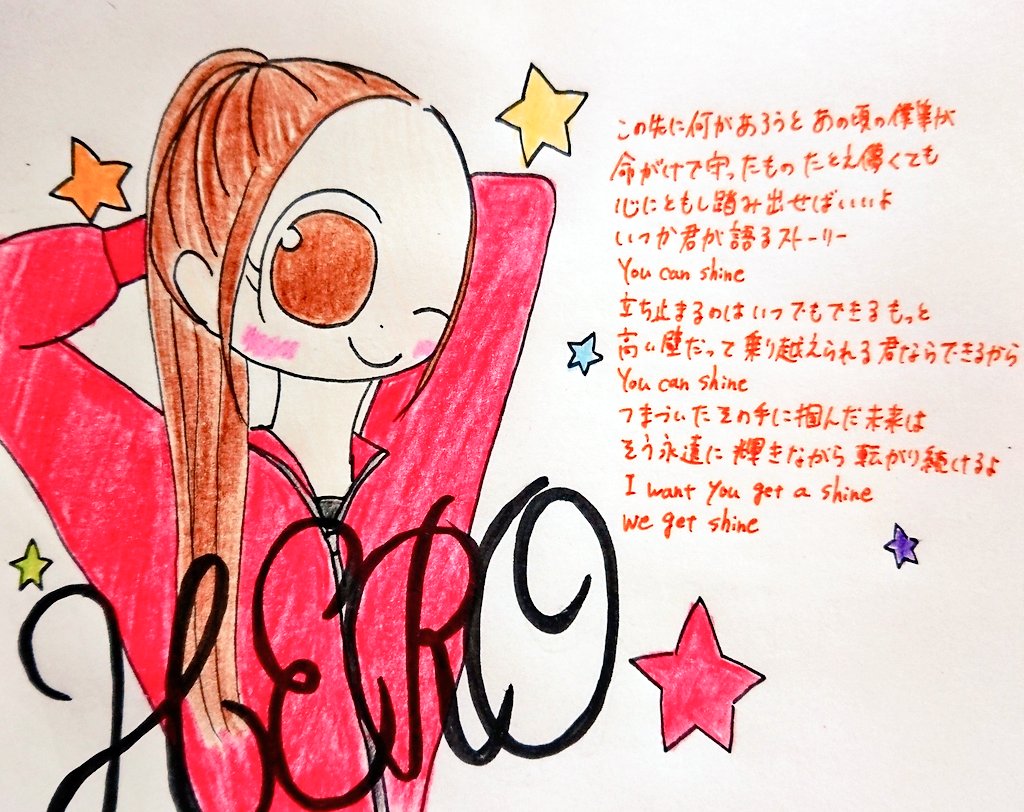 この先に何があろうと あの頃の僕等が
命がけで守ったもの たとえ儚くても
心にともし踏み出せばいいよ
いつか君が語るストーリー
You can shine
立ち止まるのはいつでもできる もっと
高い壁だって乗り越えられる 君ならできるから
You can shine
つまづいたその手に掴んだ未来は
そう永遠に輝きながら転がり続けるよ
I want you get a shine
we get shine
HERO